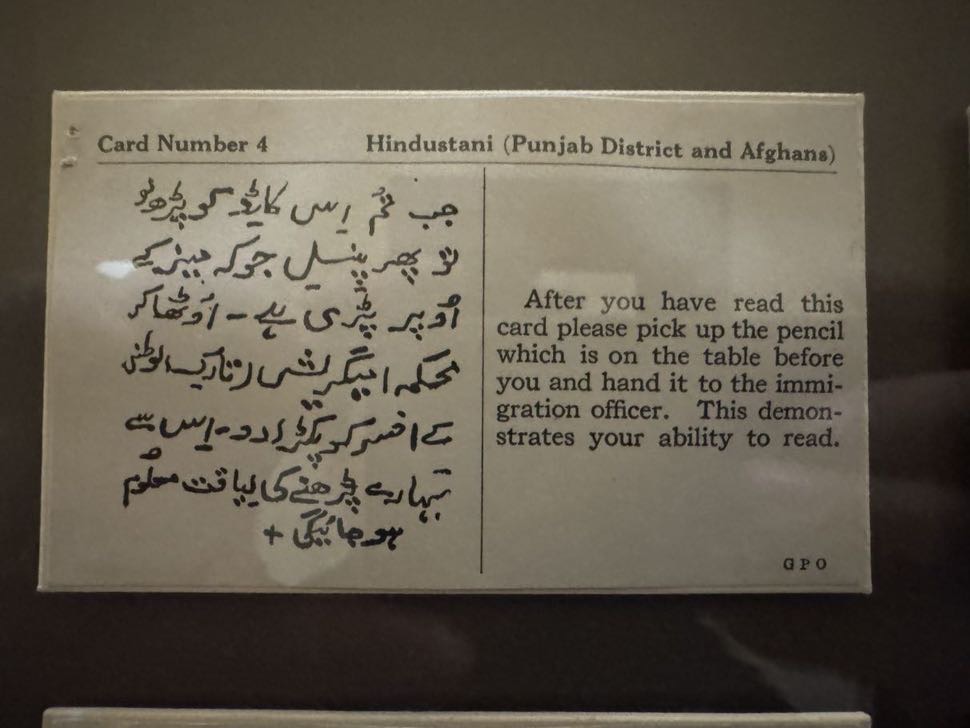 Card Number 4
Hindustani (Punjab District and Afghans)
جب تُم اِس کارڈ کو پڑھ لو
تو پھر پنسِل جو کہ میز کے
اُوپر پڑی ہے - اُوٹھا کر
محکمہ امیگریشن
کے افسر کو پکڑا دو - اِس سے
تمہارے پڑھنے کی لیاقت معلُوم
ہو جائیگی +
After you have read this
card please pick up the pencil
which is on the table before
you and hand it to the immi-
gration officer. This demon-
strates your ability to read.
GPO